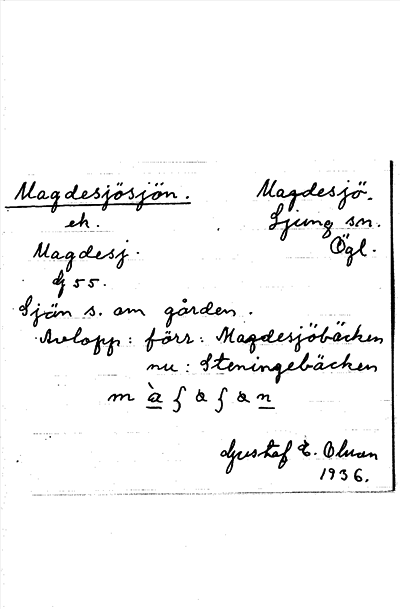 Magdesjösjön. Magdesjö.
ek. Ljung sn.
Magdesj. Ögl.
55.
Sjön s. om gården.
Avlopp: förr: Magdesjöbäcken
nu: Steningebäcken
Gustaf E. Olsson
1936.